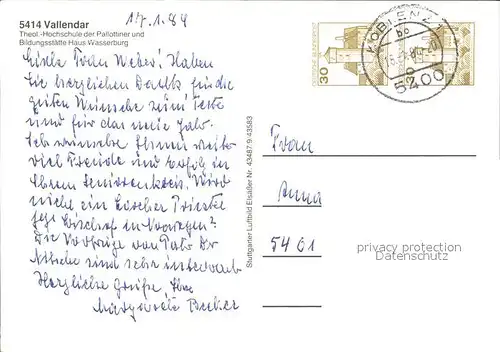 17.1.84
5414 Vallendar
Theol.-Hochschule der Pallottiner und
Bildungsstätte Haus Wasserburg
Liebe Frau Weber! Haben
Sie herzlichen Dank für die
guten Wünsche zum Feste
und für das neue Jahr.
Ich wünsche Ihnen weiter
viel Freude und Erfolg in
Ihrem Seniorenkreis. Wird
nicht ein Priester
Bischof in Norwegen?
Die Vorträge von Pater Dr
sind sehr interessant
Herzliche Grüße. Ihre
Margarete Becker
Stuttgarter Luftbild Elsäßer Nr. 43487 9/43583
30
KOBLENZ
5400
Frau
Anna
5401
privacy protection
Datenschutz